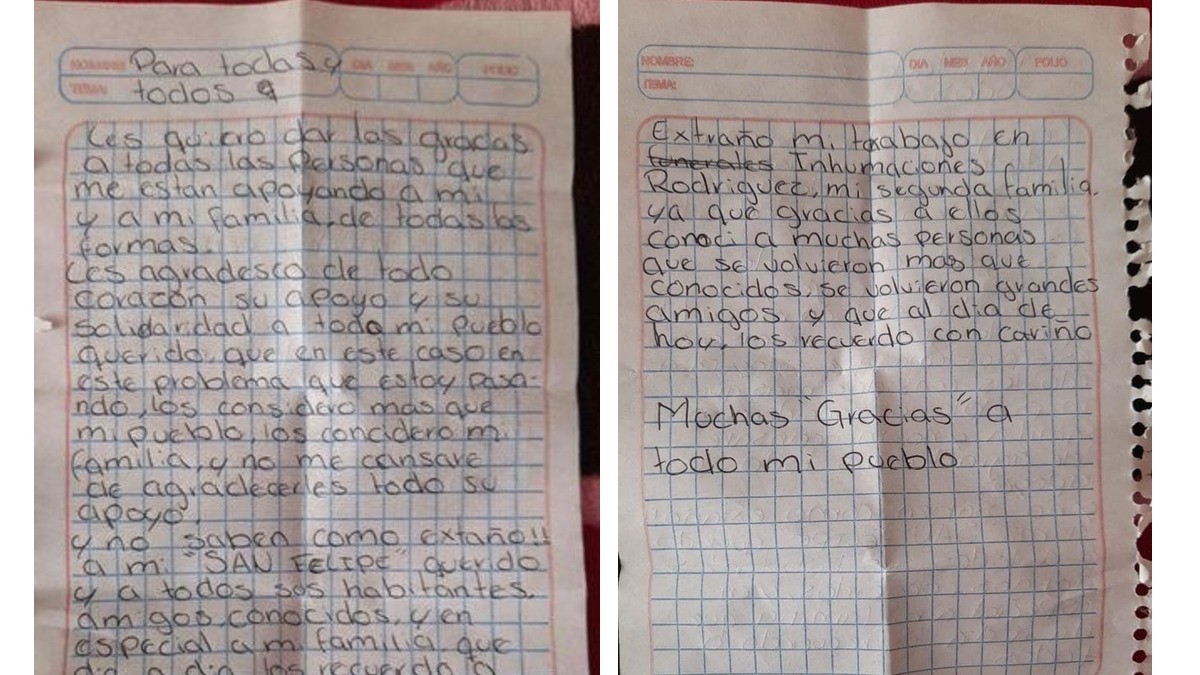 NOMBRE: Para todas y
DIA MES AÑO FOLIO
TEMA: todos
Les quiero dar las gracias
a todas las Personas que
me estan apoyando a mi
y a mi familia, de todas las
formas.
Les agradesco de todo
corazón su apoyo y su
solidaridad a toda mi pueblo
querido, que en este caso en
este problema que estoy pasa-
ndo, los considero mas que
mi pueblo, los concidero mi
familia, y no me cansare
de agradecerles todo su
apoyo.
y no saben como extaño!!
a mi "SAN FELIPE" querido
y a todos sus habitantes.
amigos, conocidos, y en
especial a mi familia que
dia a dia los recuerdo a
NOMBRE:
DIA MES AÑO FOLIO
TEMA:
Extraño mi trabajo en
fenerales Inhumaciones
Rodriguez, mi segunda familia.
ya que gracias a ellos
conoci a muchas personas
que se volvieron mas que
conocidos, se volvieron grandes
amigos, y que al dia de
hoy, los recuerdo con cariño
Muchas "Gracias" a
todo mi pueblo